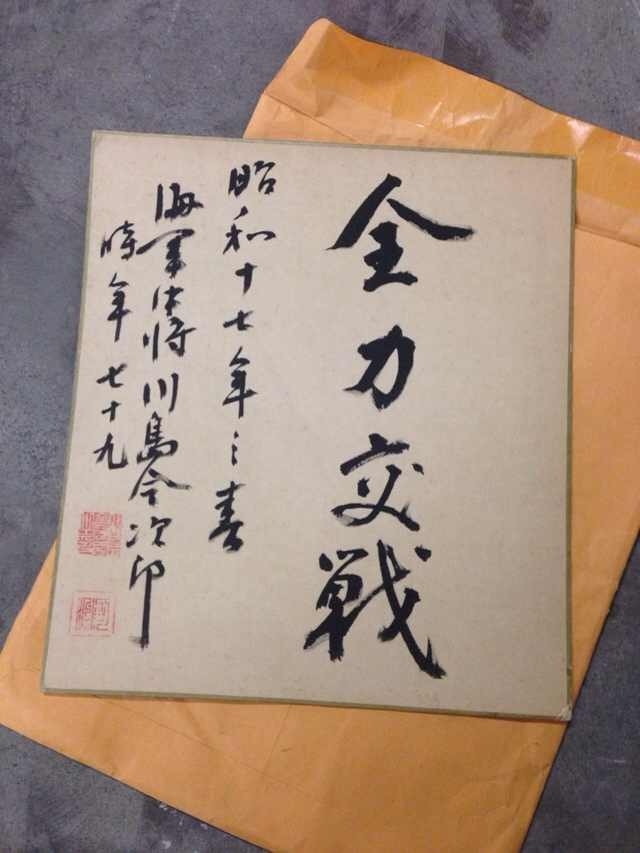 全力交戦
昭和十七年之春
海軍中将川島令次郎
時年七十九